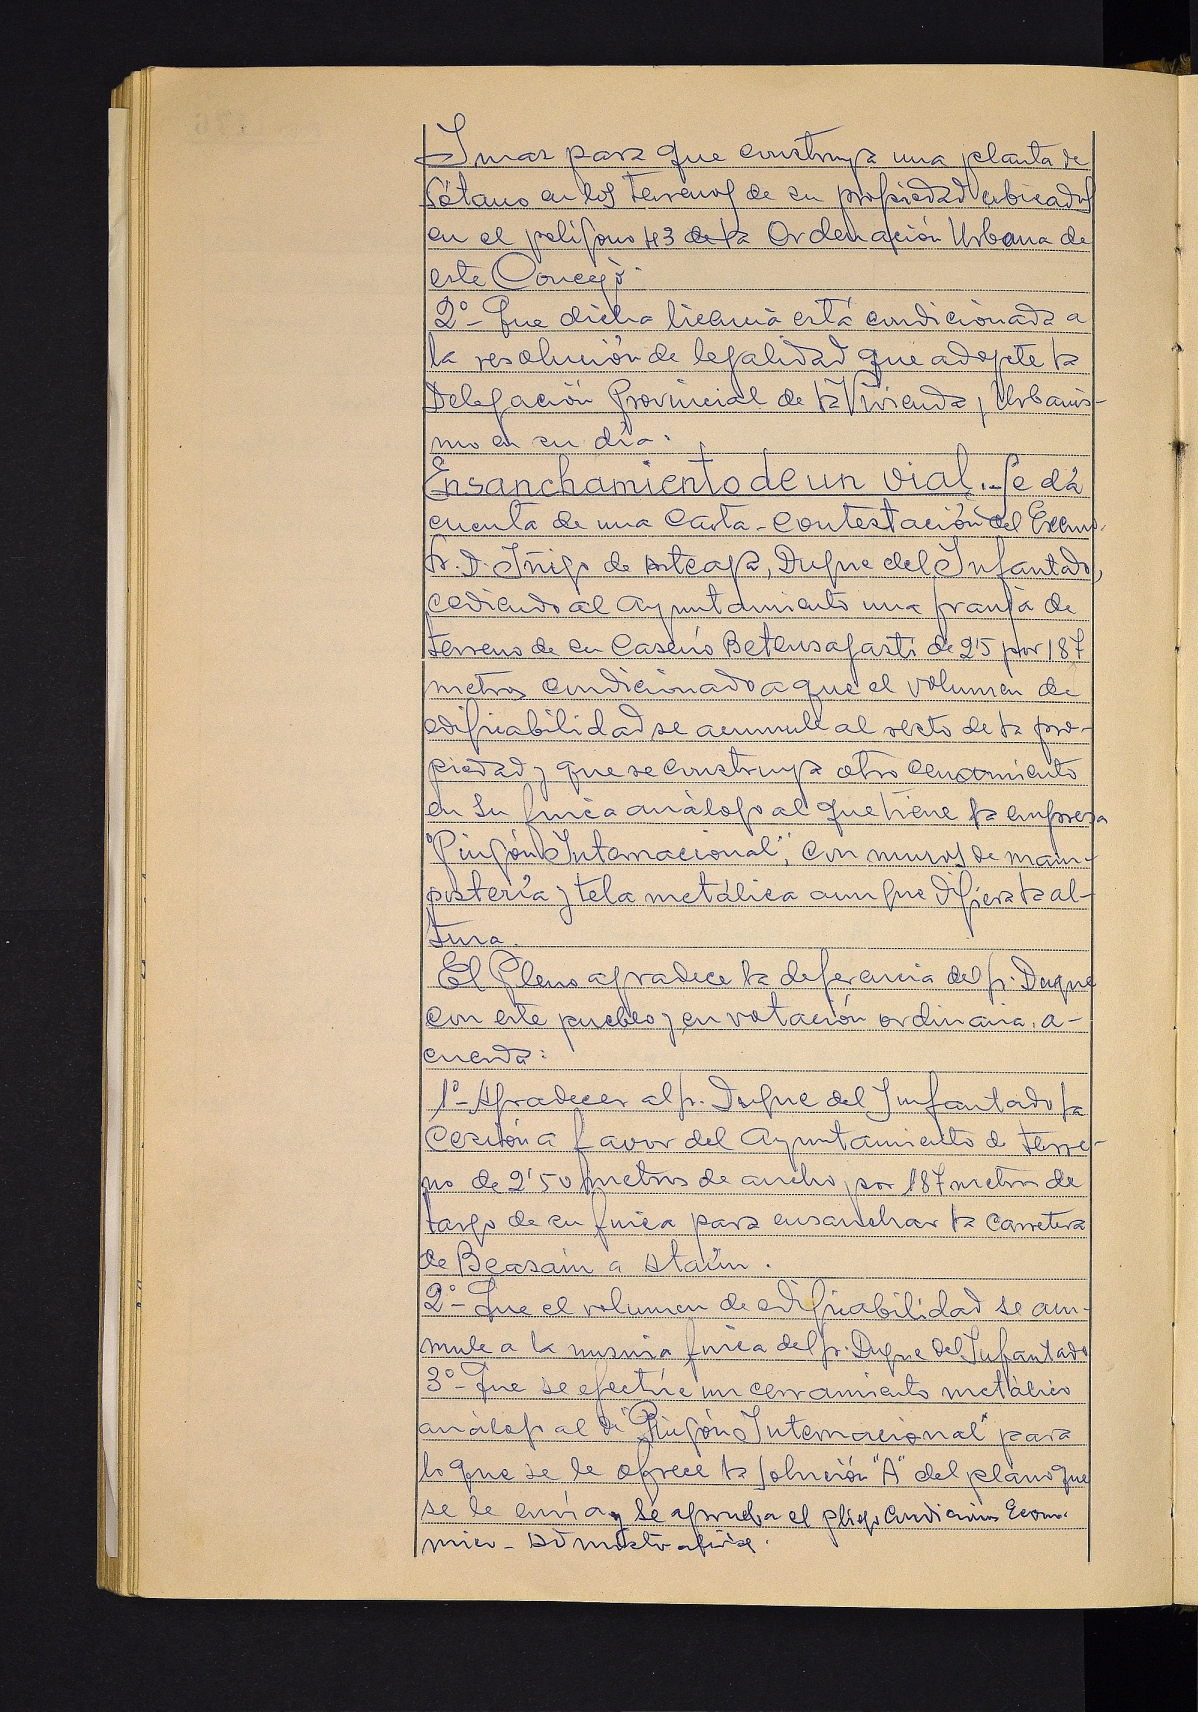 Imaz para que construya una planta de
Sótano en los terrenos de su propiedad ubicados
en el polígono 43 de la Ordenación Urbana de
este Concejo.
2º- Que dicha licencia está condicionada a
la resolución de legalidad que adopte la
Delegación Provincial de la Vivienda y Urbanis-
mo en su día.
Ensanchamiento de un vial.- Se dá
cuenta de una Carta-Contestación del Excmo.
Sr. D. Iñigo de Arteaga, Duque del Infantado,
cediendo al Ayuntamiento una franja de
terreno de su Caserío Betensagasti de 2'5 por 187
metros condicionado a que el volumen de
edificabilidad se acumule al resto de la pro-
piedad y que se construya otro cerramiento
en su finca análogo al que tiene la empresa
"Piñgón Internacional", con muros de mam-
postería y tela metálica aunque difiera la al-
tura.
El Pleno agradece la deferencia del Sr. Duque
con este pueblo y en votación ordinaria, a-
cuerda:
1º- Agradecer al Sr. Duque del Infantado la
Cesión a favor del Ayuntamiento de terre-
no de 2'50 metros de ancho, por 187 metros de
largo de su finca para ensanchar la carretera
de Beasain a Ataún.
2º- Que el volumen de edificabilidad se acu-
mule a la misma finca del Sr. Duque del Infantado
3º- Que se efectúe un cerramiento metálico
análogo al de "Piñgón Internacional" para
lo que se le ofrece la Solución "A" del plano que
se le envía y se aprueba el pliego Condiciones Econo-
mico-Administrativas.